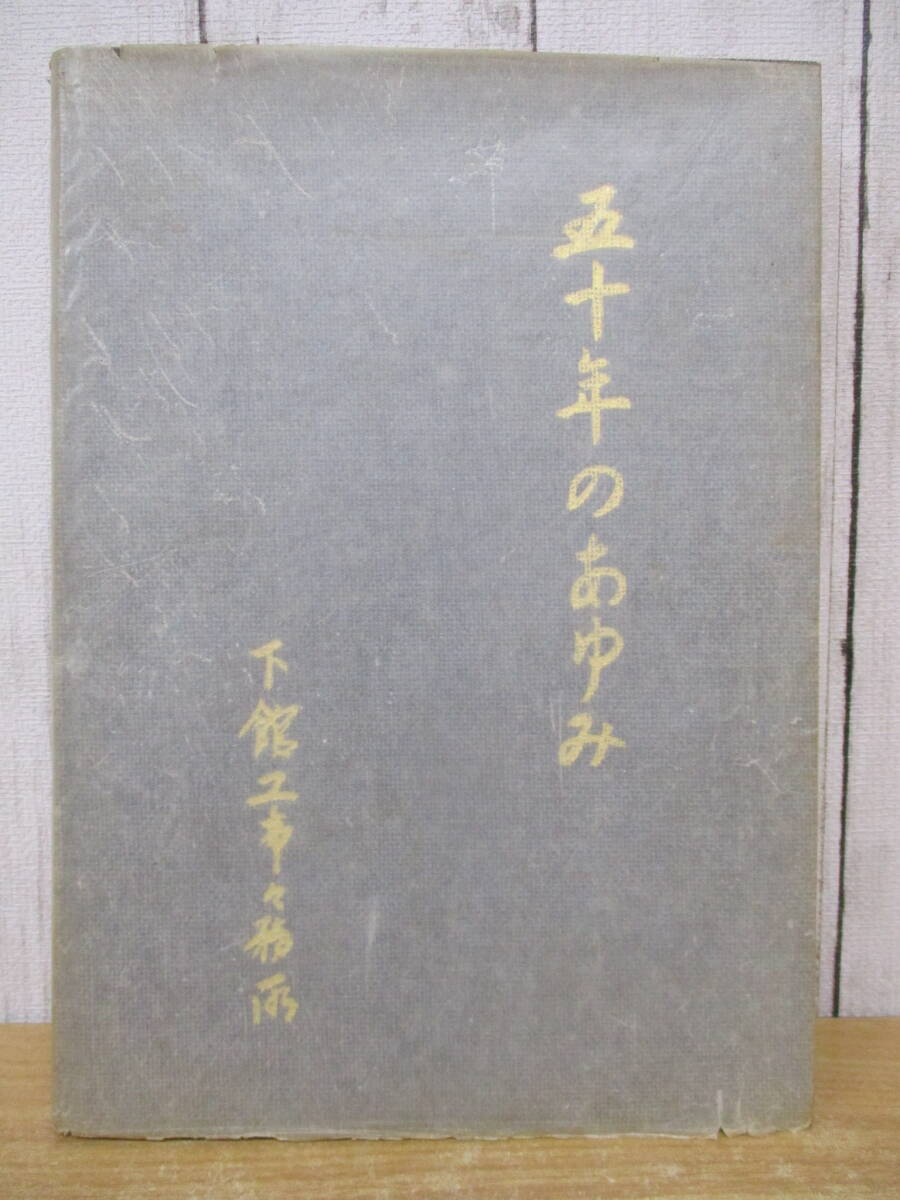 五十年のあゆみ
下館工事々務所